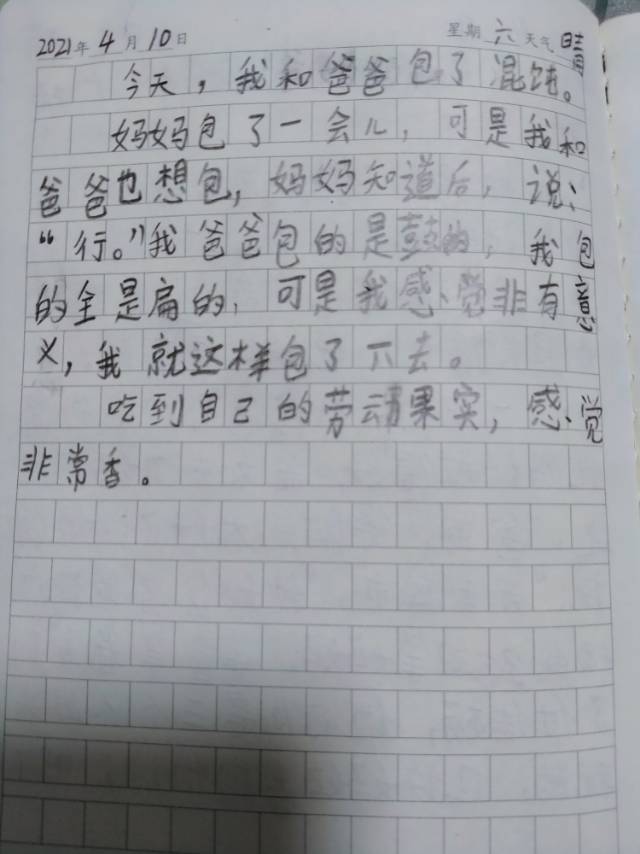 2021年4月10日 星期六天气晴
今天，我和爸爸包了混饨。
妈妈包了一会儿，可是我和
爸爸也想包，妈妈知道后，说：
“行。”我爸爸包的是鼓的，我包
的全是扁的，可是我感觉非有意
义，我就这样包了下去。
吃到自己的劳动果实，感觉
非常香。